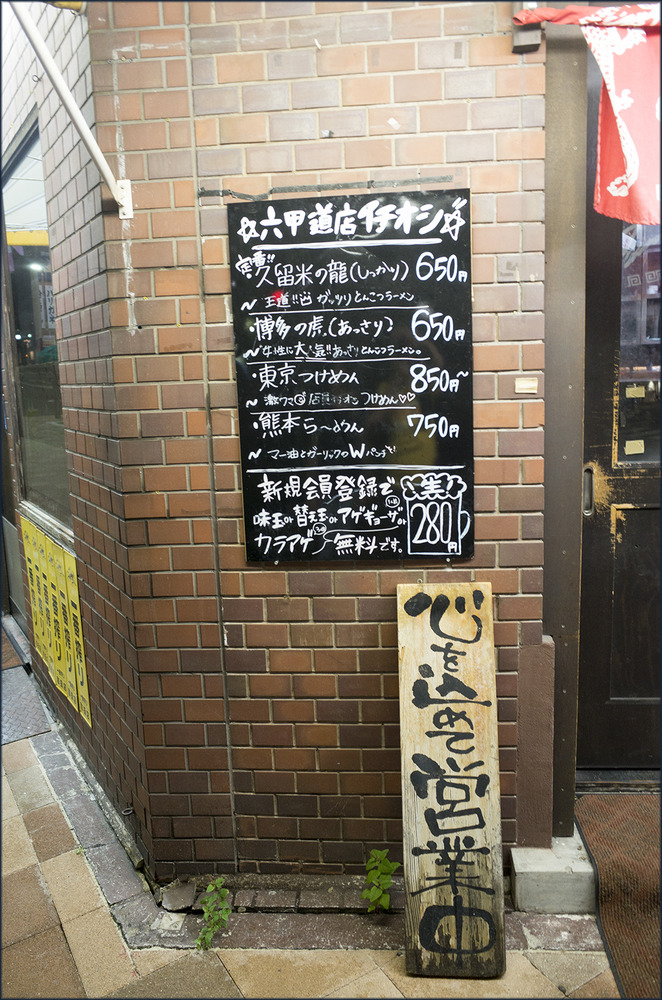 六甲道店イチオシ
定番!!
久留米の龍(しっかり) 650円
〜 王道!! ガッツリとんこつラーメン
・博多の虎(あっさり) 650円
〜女性に大人気!!あっさりとんこつラーメン。
・東京つけめん 850円〜
〜激ウマ 店員イチオシ つけめん♡♡
・熊本ら〜めん 750円
〜 マー油とガーリックのWパンチ
新規会員登録で
味玉or替え玉orアゲギョーザor
カラアゲ 無料です。
280円
心を込めて営業中